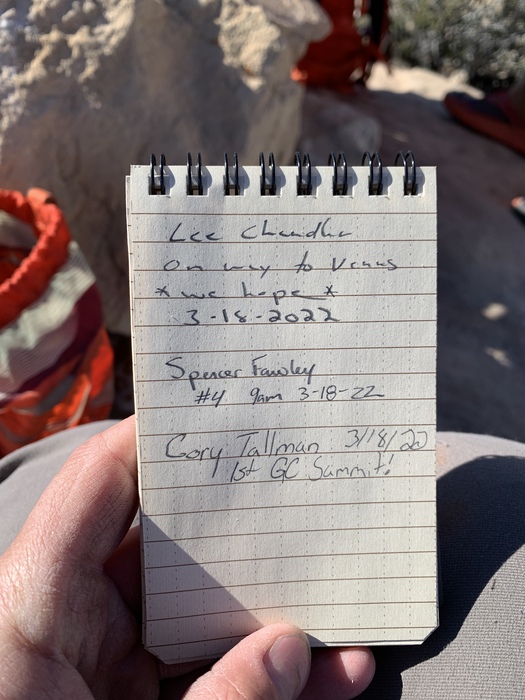 Lee Chandler
on way to Venus
*we hope*
3-18-2022
Spencer Fawley
#4 9am 3-18-22
Cory Tallman 3/18/20
1st GC Summit!